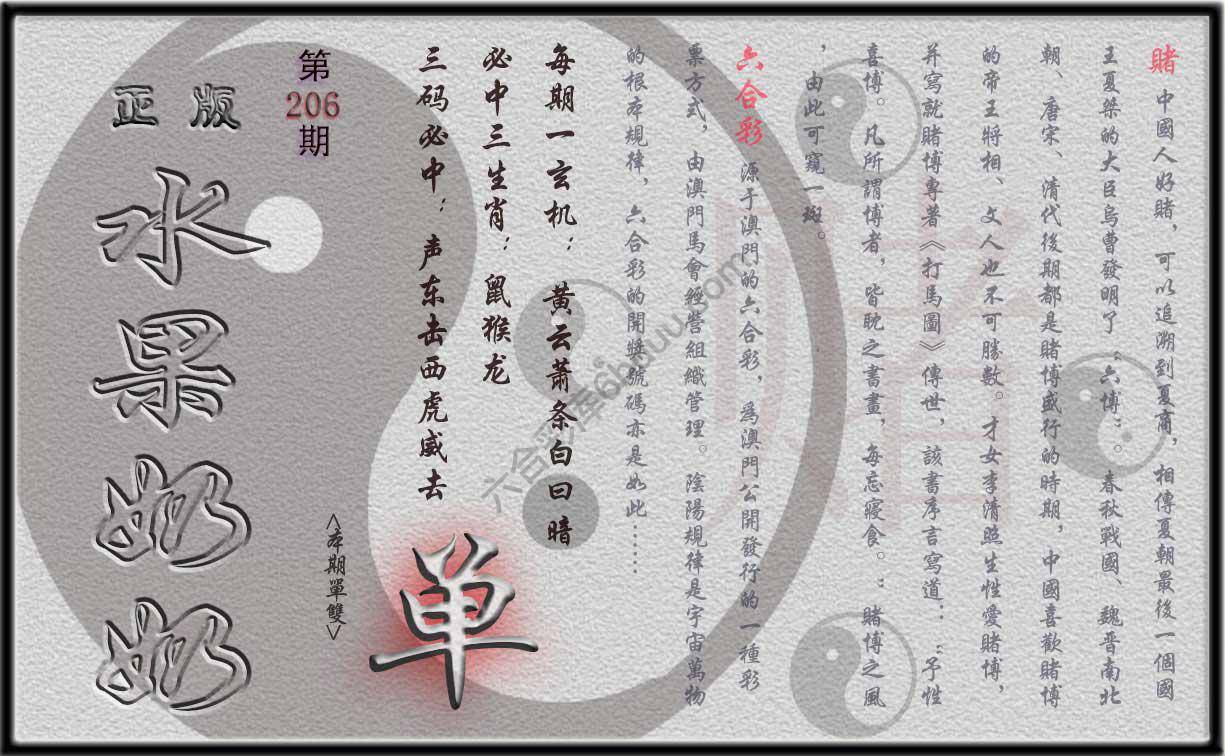 賭 中國人好賭，可以追溯到夏商，相傳夏朝最後一個國
王夏桀的大臣烏曹發明了“六博”。春秋戰國、魏晋南北
朝、唐宋、清代後期都是賭博盛行的時期，中國喜歡賭博
的帝王將相、文人也不可勝數。才女李清照生性愛賭博，
并寫就賭博專著《打馬圖》傳世，該書序言寫道：“予性
喜博。凡所謂博者，皆耽之晝畫，每忘寢食。：賭博之風
，由此可窺一斑。
六合彩 源于澳門的六合彩，爲澳門公開發行的一種彩
票方式，由澳門馬會經營組織管理。陰陽規律是宇宙萬物
的根本規律，六合彩的開獎號碼亦是如此……
每期一玄机：黄云萧条白曰暗
必中三生肖：鼠猴龙
三码必中：声东击西虎威去
单
<本期單雙>
第
206
期
正版
水果奶奶
赌
六合彩库6hduu.com